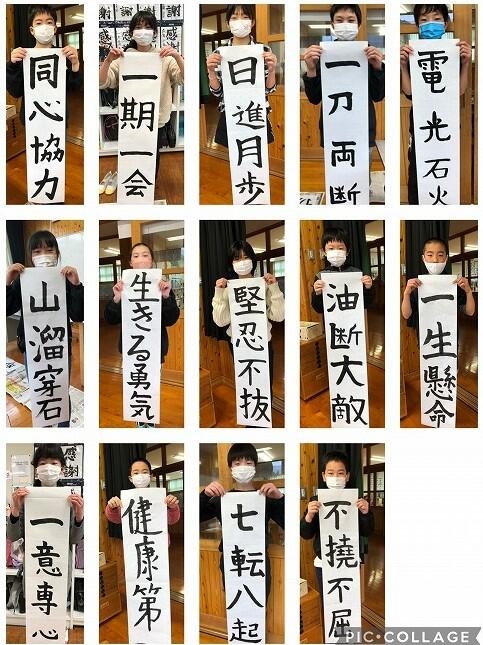 同心協力
一期一会
日進月歩
一刀両断
電光石火
山溜穿石
生きる勇気
堅忍不抜
油断大敵
一生懸命
一意専心
健康第
七転八起
不撓不屈
感謝
感謝
感謝
PIC•COLLAGE